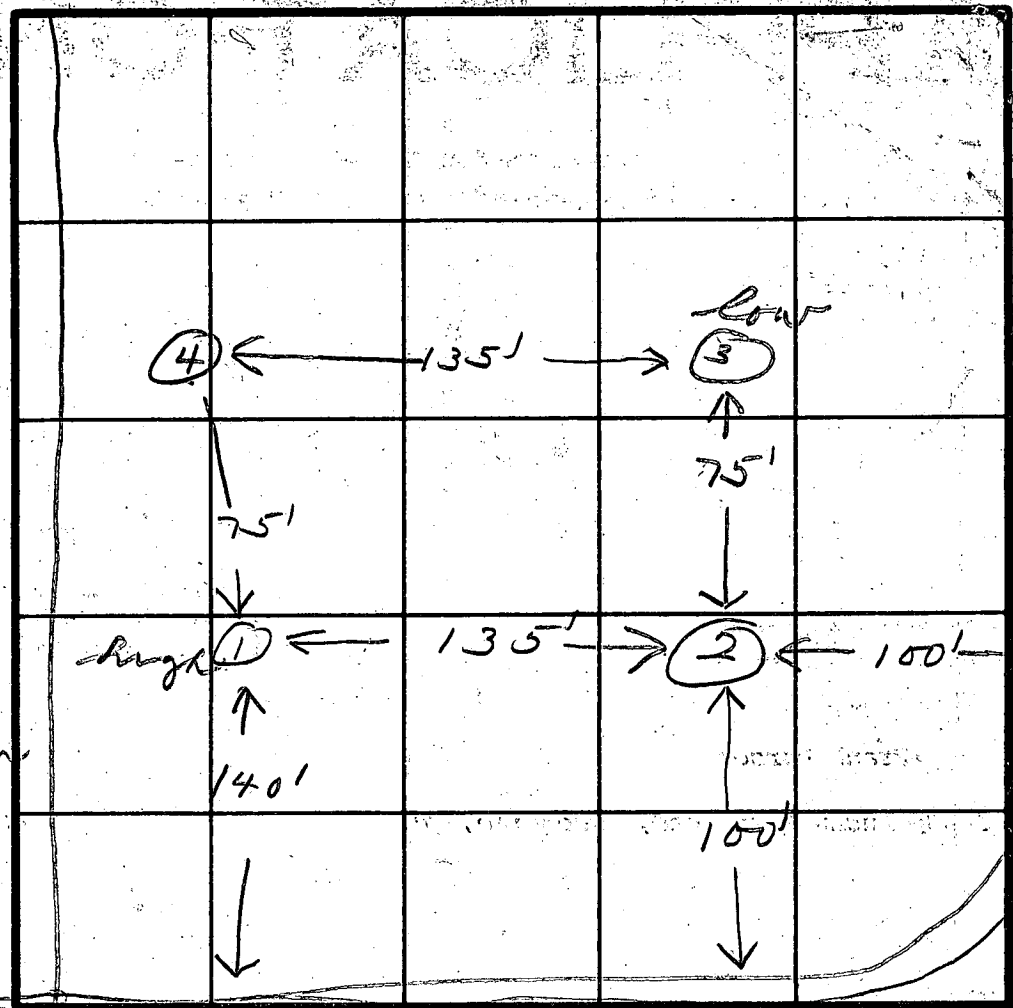 low
4 135' 3
75'
75'
high 1 135' 2 100'
140'
100'